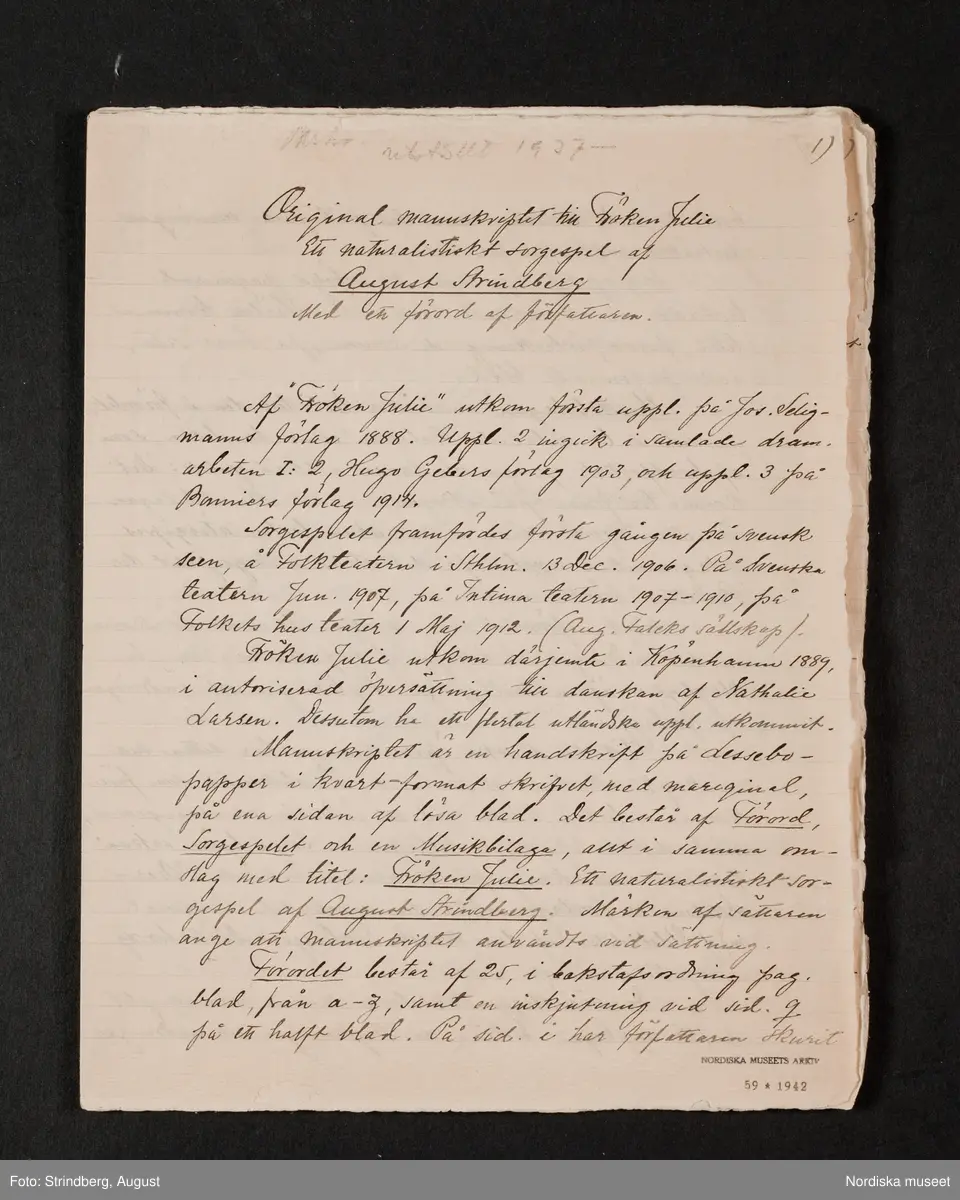 1)
1937 —
Original manuskriptet till Fröken Julie
Ett naturalistiskt sorgespel af
August Strindberg
Med ett förord af författaren.
Af "Fröken Julie" utkom första uppl. på Jos. Selig-
manns förlag 1888. Uppl. 2 ingick i samlade dram.
arbeten I: 2, Hugo Gebers förlag 1903, och uppl. 3 på
Bonniers förlag 1914.
Sorgespelet framfördes första gången på svensk
scen, å Folkteatern i Sthlm. 13 Dec. 1906. På Svenska
teatern Jun. 1907, på Intima teatern 1907–1910, på
Folkets hus teater 1 Maj 1912. (Aug. Falcks sällskap).
Fröken Julie utkom därjemte i Köpenhamn 1889,
i autoriserad öfversättning till danskan af Nathalie
Larsen. Dessutom ha ett flertal utländska uppl. utkommit.
Manuskriptet är en handskrift på Lessebo-
papper i kvart-format skrifvet, med marginal,
på ena sidan af lösa blad. Det består af Förord,
Sorgespelet och en Musikbilaga, allt i samma om-
slag med titel: Fröken Julie. Ett naturalistiskt sor-
gespel af August Strindberg. Märken af sättaren
ange att manuskriptet användts vid sättning.
Förordet består af 25, i bokstafsordning pag.
blad, från a–z, samt en inskjutning vid sid. q
på ett halft blad. På sid. i har författaren skurit
NORDISKA MUSEETS ARKIV
59 * 1942
Foto: Strindberg, August
Nordiska museet